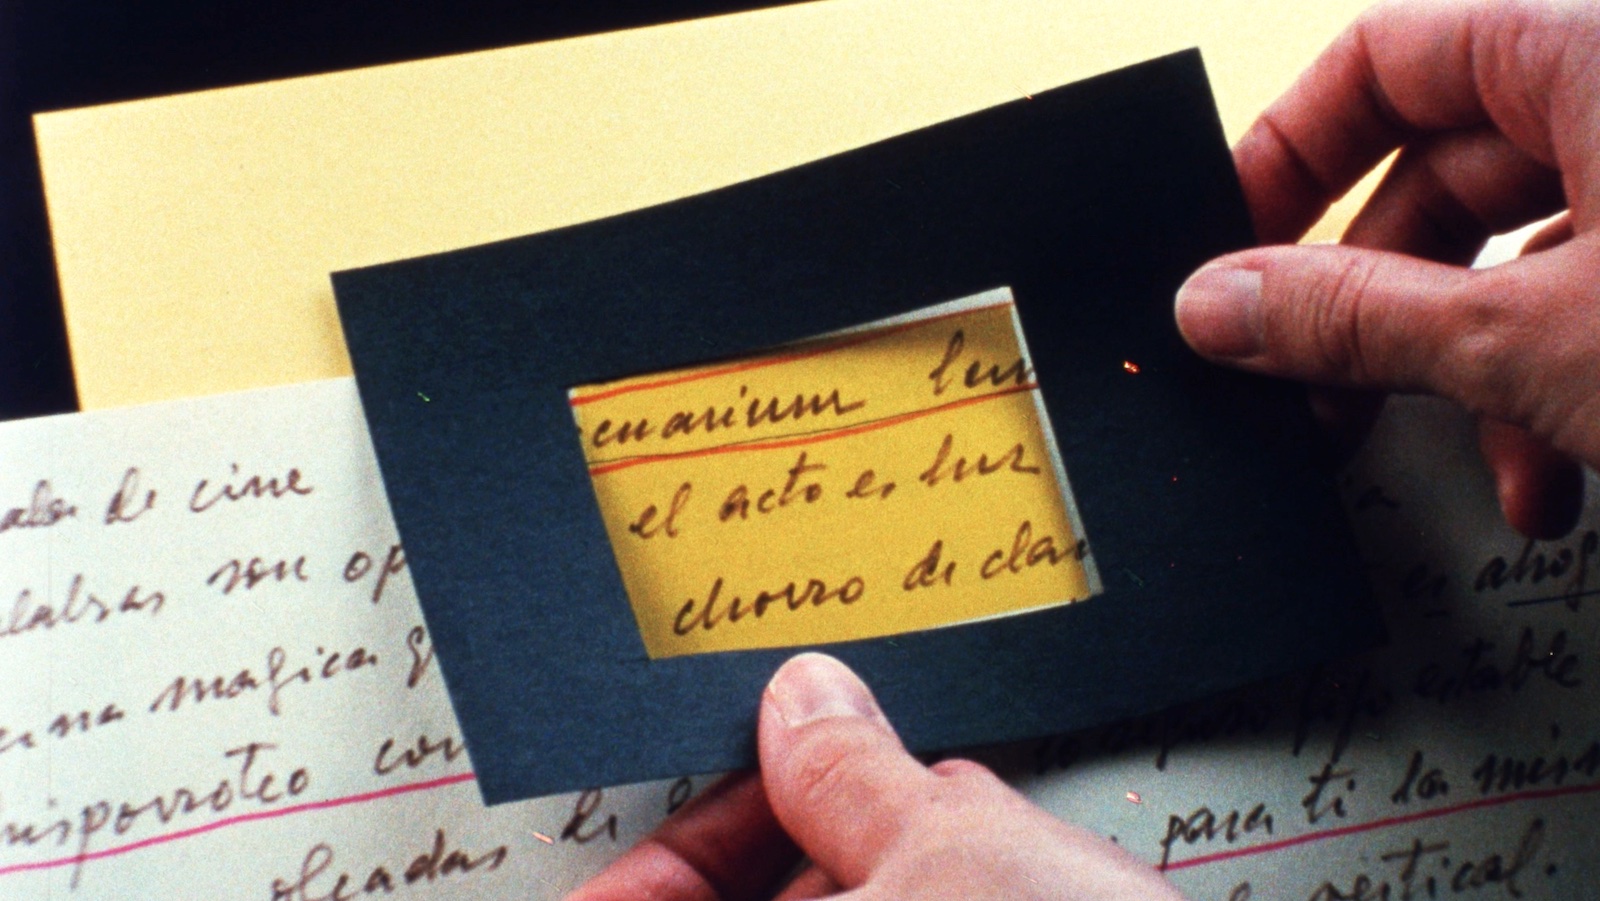 cuarium lum
el acto es luz
chorro de clar
alor de cine
alabras son op
magica
chisporroteo con
oleadas de
a
es ahog
fijo estable
para ti la mism
vertical.